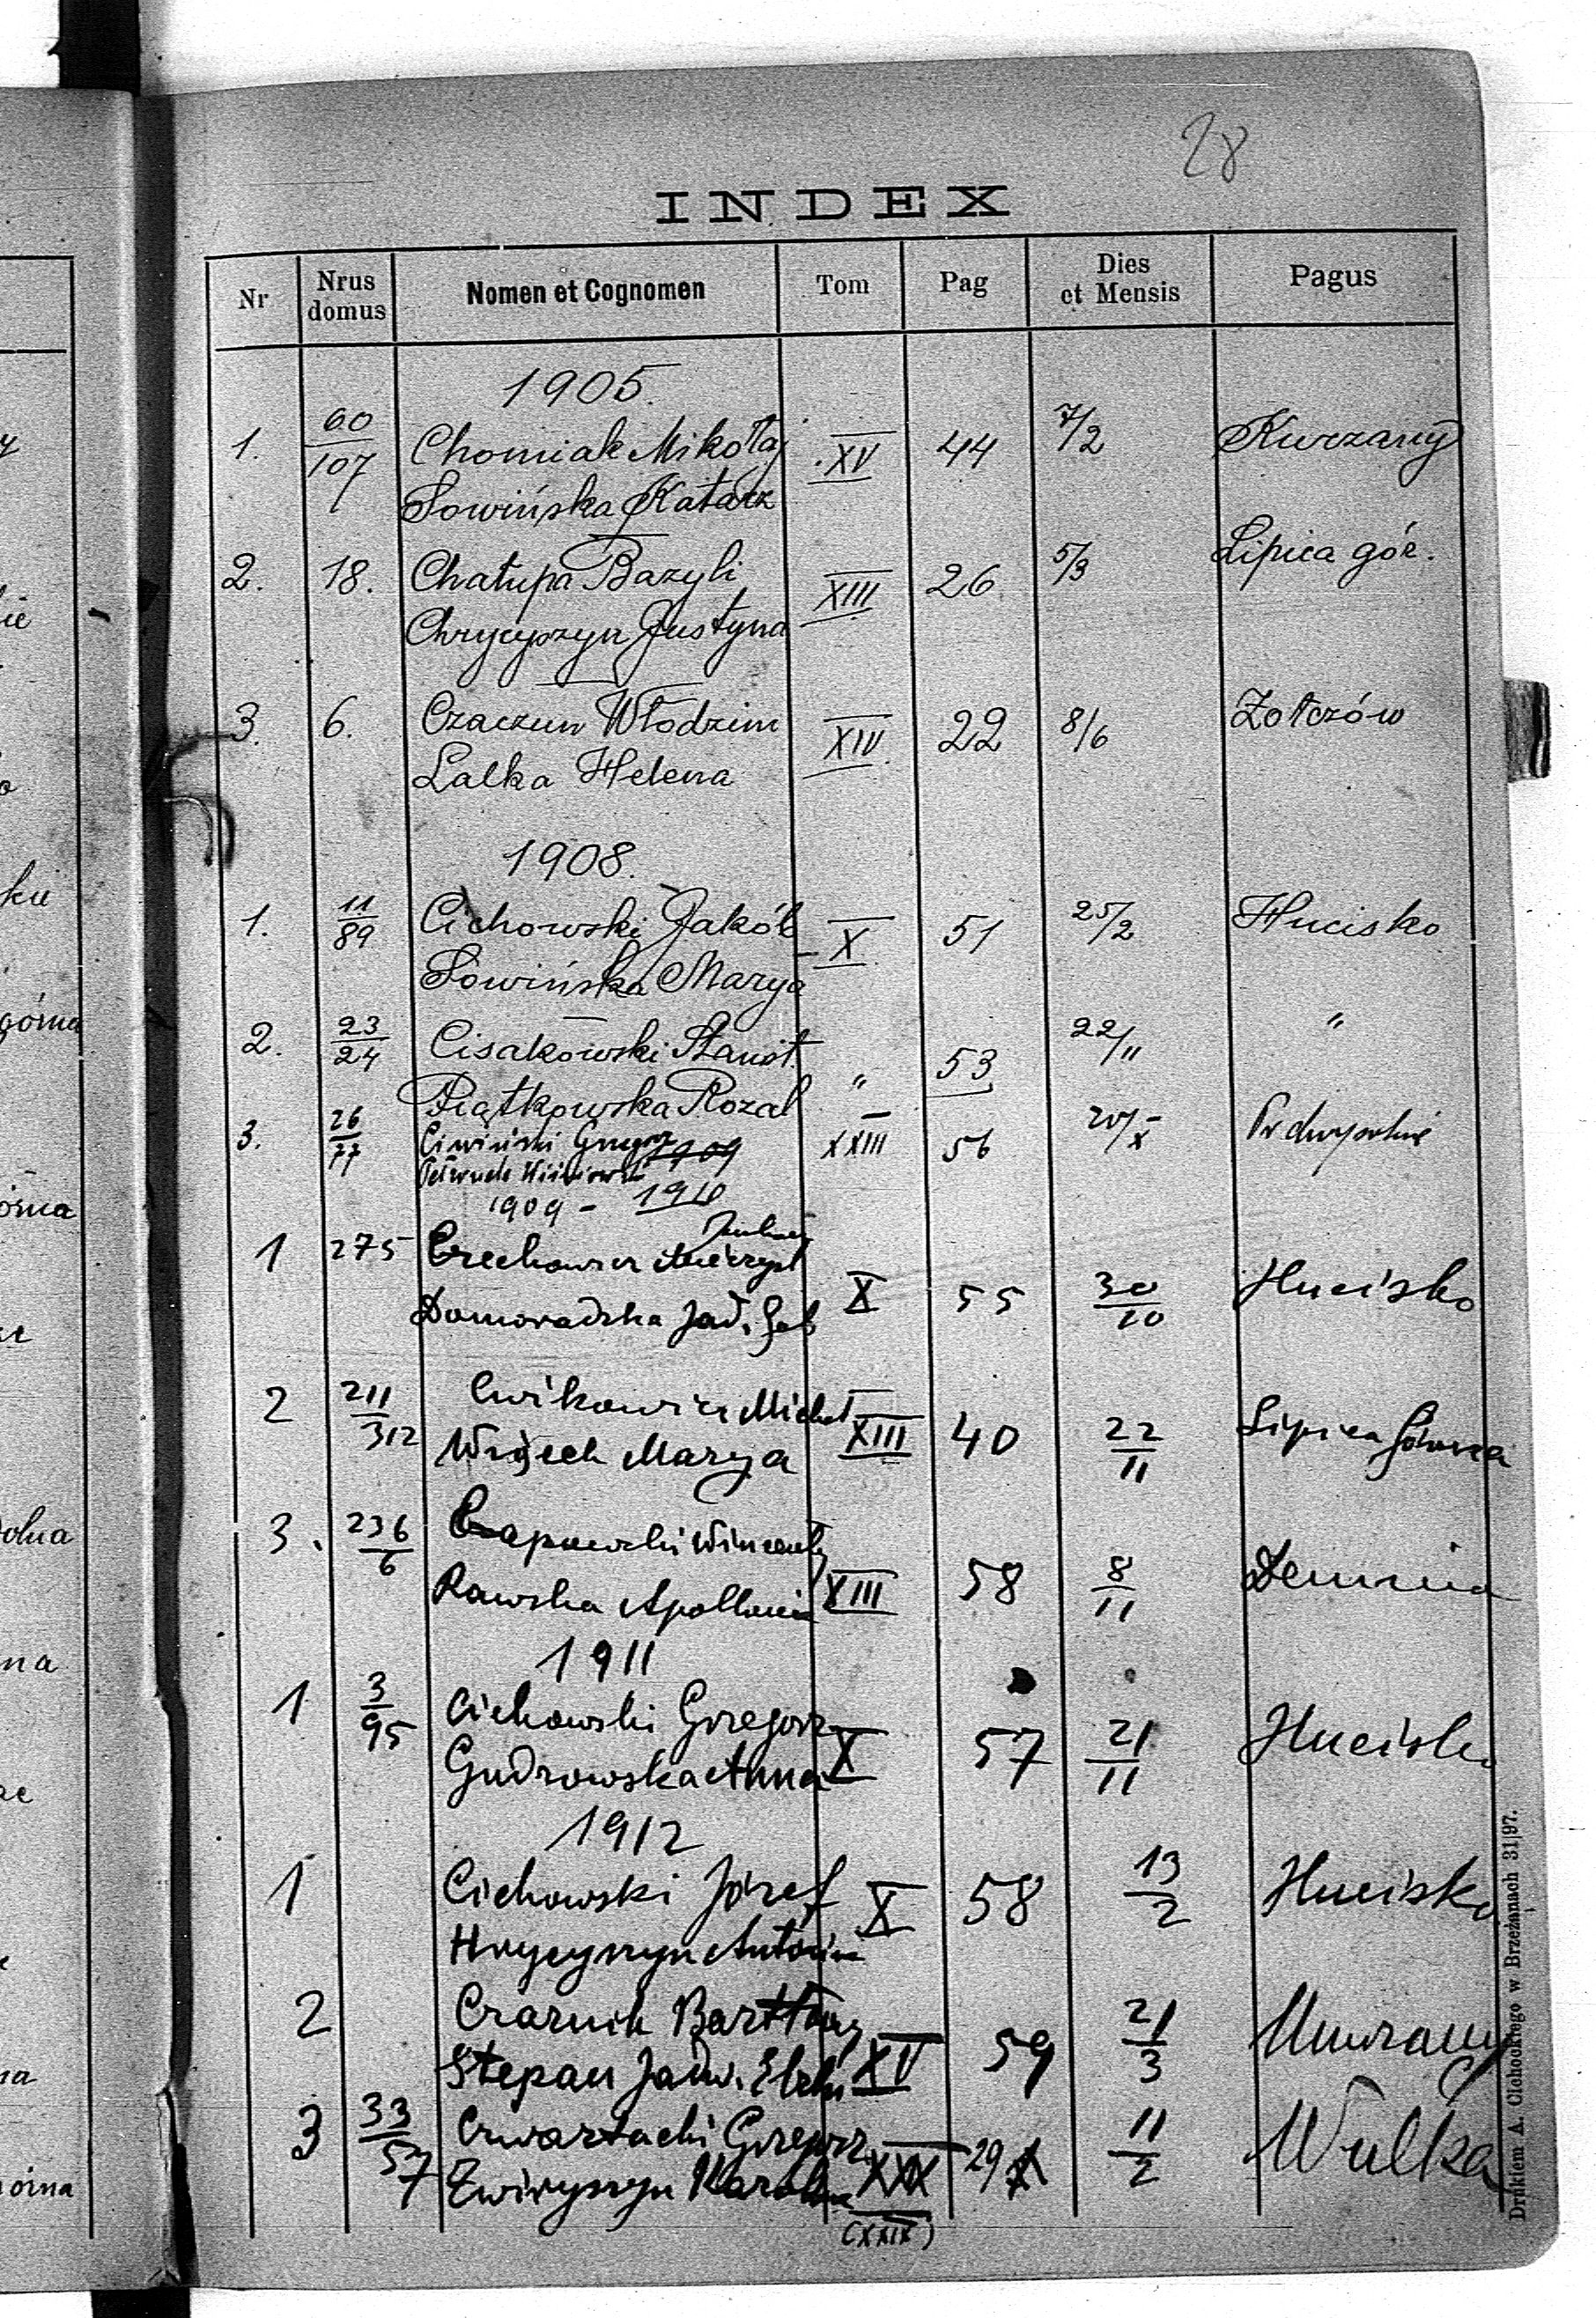 28
INDEX
Nr Nrus domus Nomen et Cognomen Tom Pag Dies et Mensis Pagus
1905.
1. 60/107 Chomiak Mikołaj XV 44 7/2 Kurzany
Sowińska Katarz
2. 18. Chałupa Bazyli XIII 26 5/3 Lipica gór.
Chrycyszyn Justyna
3. 6. Czaczun Włodzim XIV 22 8/6 Żołczów
Lalka Helena
1908.
1. 11/89 Cichowski Jakób X 51 25/2 Hucisko
Sowińska Marya
2. 23/24 Cisakowski Stanisł. " 53 22/11 "
Piątkowska Rozal
3. 26/77 Ciwiński Grzegorz XXIII 56 20/X
1909
1909 - 1910
1 275 X 55 30/10 Hucisko
Domoradzka Jad. Gab
2 211/312 Cwikowicz Michał XIII 40 22/11 Lipica Górna
Wojech Marya
3. 236/6 Czapowski Wincenty XIII 58 8/11 Demnia
Rawska Apollonia
1911
1 3/95 Cichowski Grzegorz X 57 21/11 Hucisko
Gudrowska Anna
1912
1 Cichowski Józef X 58 13/2 Hucisko
Hrycyszyn Antonina
2 Czarnik Bartłomy XV 59 21/3
Stepan Jadw. Elzb
3 33/57 Czwartacki Grzegorz XXX 29 11/2 Wulka
Zwiryszyn Karolina
(XXIX)
Drukiem A. Cichockiego w Brzeżanach 31|97.